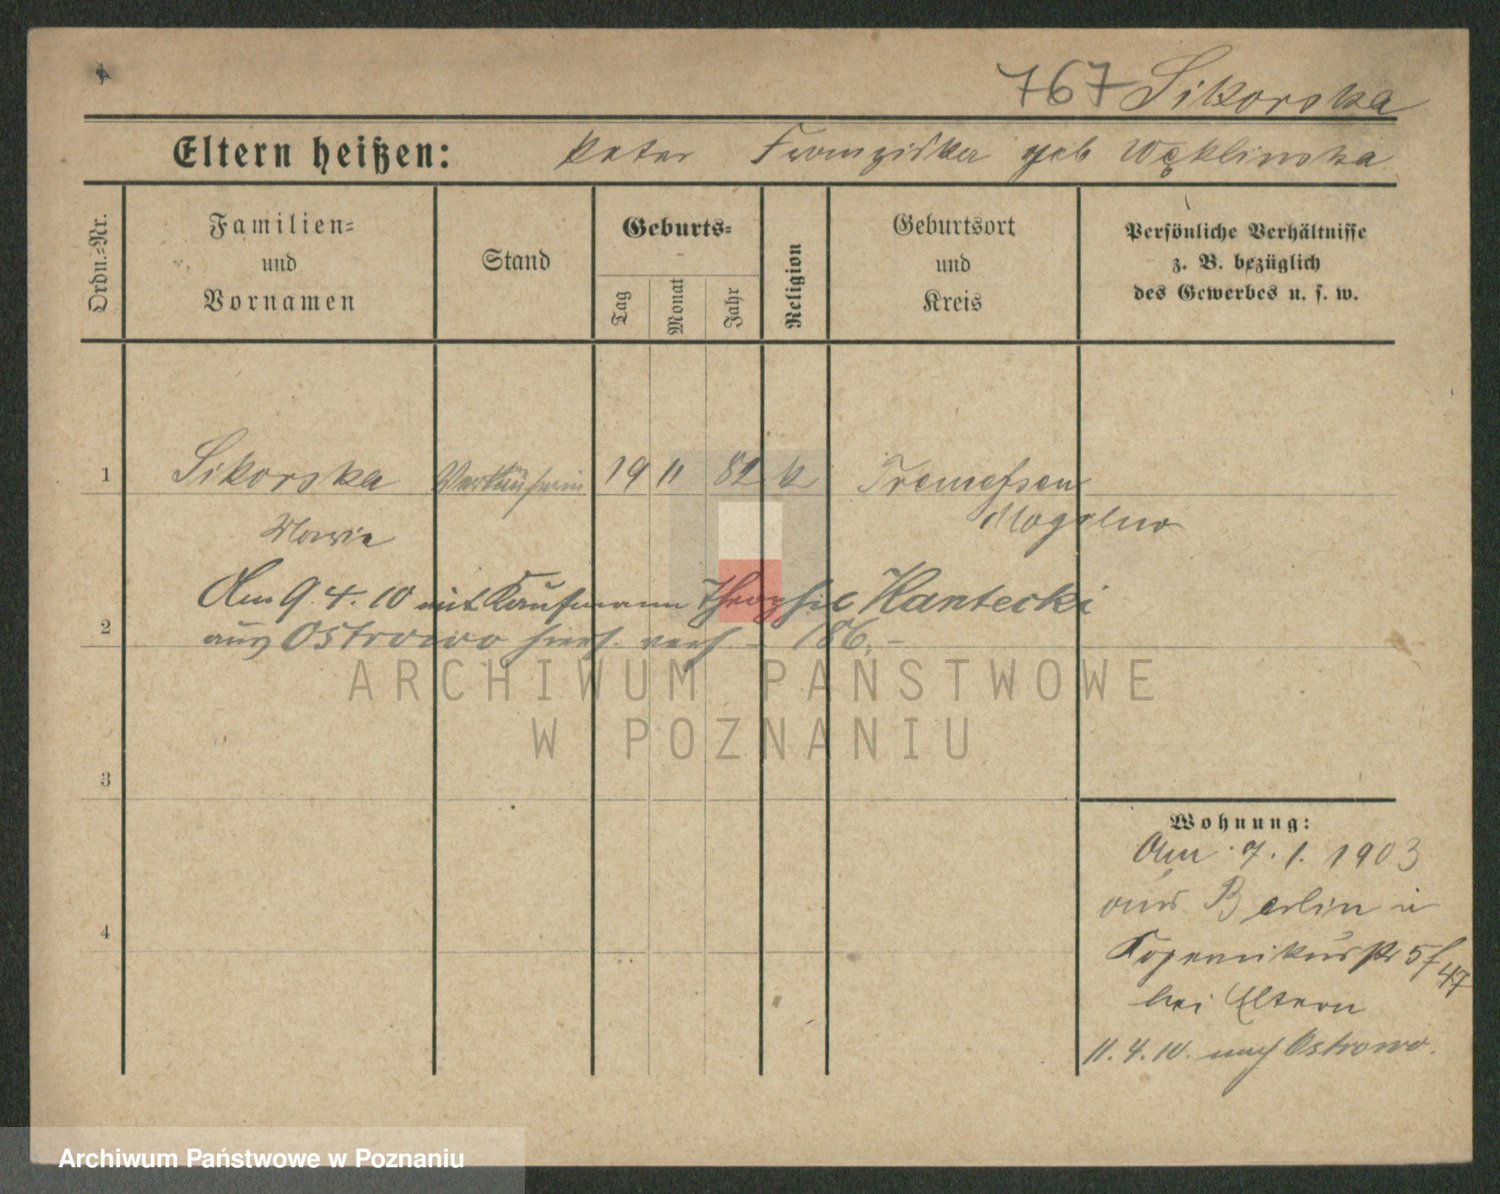 767 Sikorska
Eltern heißen: Peter Franziska geb Węklinska
Ordn.-Nr.
Familien-
und
Vornamen
Stand
Geburts-
Tag
Monat
Jahr
Religion
Geburtsort
und
Kreis
Persönliche Verhältnisse
z. B. bezüglich
des Gewerbes u. s. w.
1 Sikorska Verkäuferin 19 11 82 k Tremessen
Marie Mogilno
Am 9.4.10 mit Kaufmann Theophil Hantecki
2 aus Ostrowo hier verh. - 186. -
3
4
Wohnung:
Am 7.1.1903
aus Berlin
Kopernikusstr 5
47
bei Eltern
11.4.10. nach Ostrowo.
ARCHIWUM PAŃSTWOWE
W POZNANIU
Archiwum Państwowe w Poznaniu